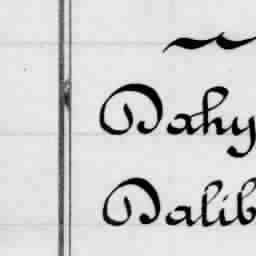 Dahy
Dalib